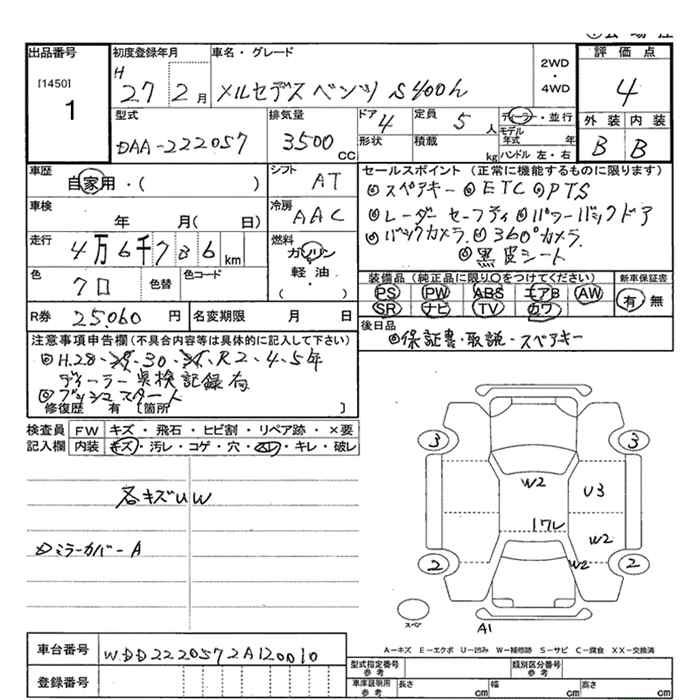 出品番号
[1450]
1
初度登録年月
H 27 2月
車名・グレード
メルセデスベンツ S400h
2WD
・
4WD
評価点
4
外装 内装
B B
型式
DAA-222057
排気量
3500 CC
ドア 4
形状
定員 5 人
積載 kg
ディーラー・並行
モデル年式 年
ハンドル 左・右
車歴
自家用・( )
シフト AT
車検
年 月( 日)
冷房 AAC
走行
4万6千736km
燃料
ガソリン
軽油
・
( )
色 クロ
色替
色コード
R券 25,060円
名変期限 月 日
セールスポイント (正常に機能するものに限ります)
◎スペアキー ◎ETC ◎PTS
◎レーダーセーフティ ◎パワーバックドア
◎バックカメラ. ◎360°カメラ.
◎黒皮シート
装備品 (純正品に限り○をつけてください)
PS PW ABS エアB AW
SR ナビ TV カワ
新車保証書
有 無
後日品
◎保証書・取説・スペアキー
注意事項申告欄 (不具合内容等は具体的に記入して下さい)
◎H.28・29.30・31・R2.4.5年
ディーラー点検記録有
◎プッシュスタート
修復歴 有 [箇所 ]
検査員
記入欄
FW キズ・飛石・ヒビ割・リペア跡・×要
内装 キズ・汚レ・コゲ・穴・スレ・キレ・破レ
各キズUW
ミラーカバーA
3
3
W2
U3
1ワレ
W2
W2
2
2
スペア
A1
A-キズ E-エクボ U-凹み W-補修跡 S-サビ C-腐食 XX-交換済
車台番号 WDD2220572A120010
登録番号
型式指定番号
参考
類別区分番号
参考
車庫証明用
参考
長さ cm 幅 cm 高さ cm